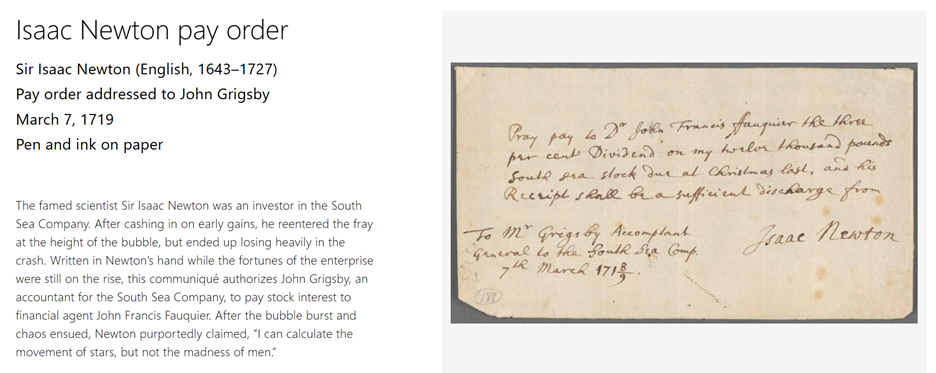 Isaac Newton pay order
Sir Isaac Newton (English, 1643–1727)
Pay order addressed to John Grigsby
March 7, 1719
Pen and ink on paper
The famed scientist Sir Isaac Newton was an investor in the South
Sea Company. After cashing in on early gains, he reentered the fray
at the height of the bubble, but ended up losing heavily in the
crash. Written in Newton’s hand while the fortunes of the enterprise
were still on the rise, this communiqué authorizes John Grigsby, an
accountant for the South Sea Company, to pay stock interest to
financial agent John Francis Fauquier. After the bubble burst and
chaos ensued, Newton purportedly claimed, “I can calculate the
movement of stars, but not the madness of men.”
Pray pay to Dr John Francis ffauquier the three
per cent Dividend on my twelve thousand pounds
South sea stock due at Christmas last, and his
Receipt shall be a sufficient discharge from
Isaac Newton
To Mr Grigsby Accomptant
General to the South Sea Comp.
7th March 171 8/9.
188